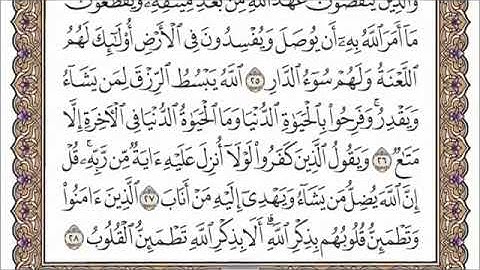 وَٱلَّذِينَ يَنقُضُونَ عَهْدَ ٱللَّهِ مِنۢ بَعْدِ مِيثَٰقِهِۦ وَيَقْطَعُونَ
مَآ أَمَرَ ٱللَّهُ بِهِۦٓ أَن يُوصَلَ وَيُفْسِدُونَ فِى ٱلْأَرْضِ أُو۟لَٰٓئِكَ لَهُمُ
ٱللَّعْنَةُ وَلَهُمْ سُوٓءُ ٱلدَّارِ ٢٥ ٱللَّهُ يَبْسُطُ ٱلرِّزْقَ لِمَن يَشَآءُ
وَيَقْدِرُ ۚ وَفَرِحُوا۟ بِٱلْحَيَوٰةِ ٱلدُّنْيَا وَمَا ٱلْحَيَوٰةُ ٱلدُّنْيَا فِى ٱلْءَاخِرَةِ إِلَّا
مَتَٰعٌ ٢٦ وَيَقُولُ ٱلَّذِينَ كَفَرُوا۟ لَوْلَآ أُنزِلَ عَلَيْهِ ءَايَةٌ مِّن رَّبِّهِۦ ۗ قُلْ
إِنَّ ٱللَّهَ يُضِلُّ مَن يَشَآءُ وَيَهْدِىٓ إِلَيْهِ مَنْ أَنَابَ ٢٧ ٱلَّذِينَ ءَامَنُوا۟
وَتَطْمَئِنُّ قُلُوبُهُم بِذِكْرِ ٱللَّهِ ۗ أَلَا بِذِكْرِ ٱللَّهِ تَطْمَئِنُّ ٱلْقُلُوبُ ٢٨